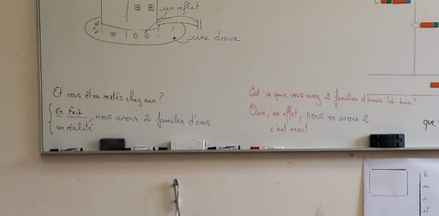 un reflet
une douve
Et vous êtes restés chez eux ?
En fait, nous avons 2 familles d'amis
en réalité
Est-ce que vous avez 2 familles d'amis là-bas ?
Oui, en effet, nous en avons 2
c'est exact
que